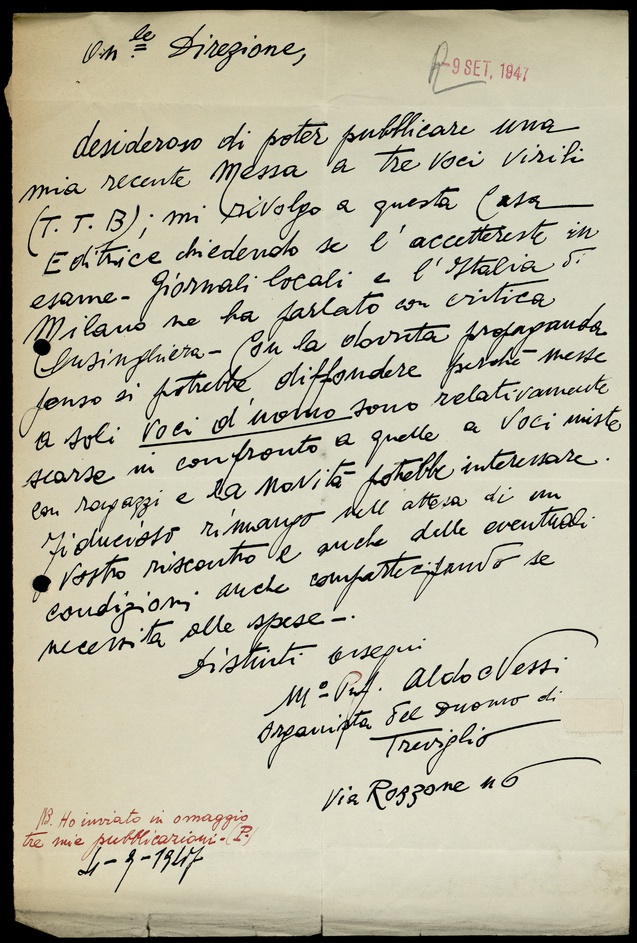 On.le Direzione,
R - 9 SET. 1947
desideroso di poter pubblicare una
mia recente Messa a tre voci virili
(T. T. B); mi rivolgo a questa Casa
Editrice chiedendo se l'accettereste in
esame - Giornali locali e l'Italia di
Milano ne ha parlato con critica
lusinghiera - Con la dovuta propaganda
penso si potrebbe diffondere perché messe
a soli voci d'uomo sono relativamente
scarse in confronto a quelle a voci miste
con ragazzi e la novità potrebbe interessare.
Fiducioso rimango nell'attesa di un
Vostro riscontro e anche delle eventuali
condizioni anche compartecipando se
necessita alle spese -.
Distinti ossequi
M° Prof. Aldo Nessi
Organista del Duomo di
Treviglio
Via Rozzone n 6
NB. Ho inviato in omaggio
tre mie pubblicazioni - (P.)
4-9-1947